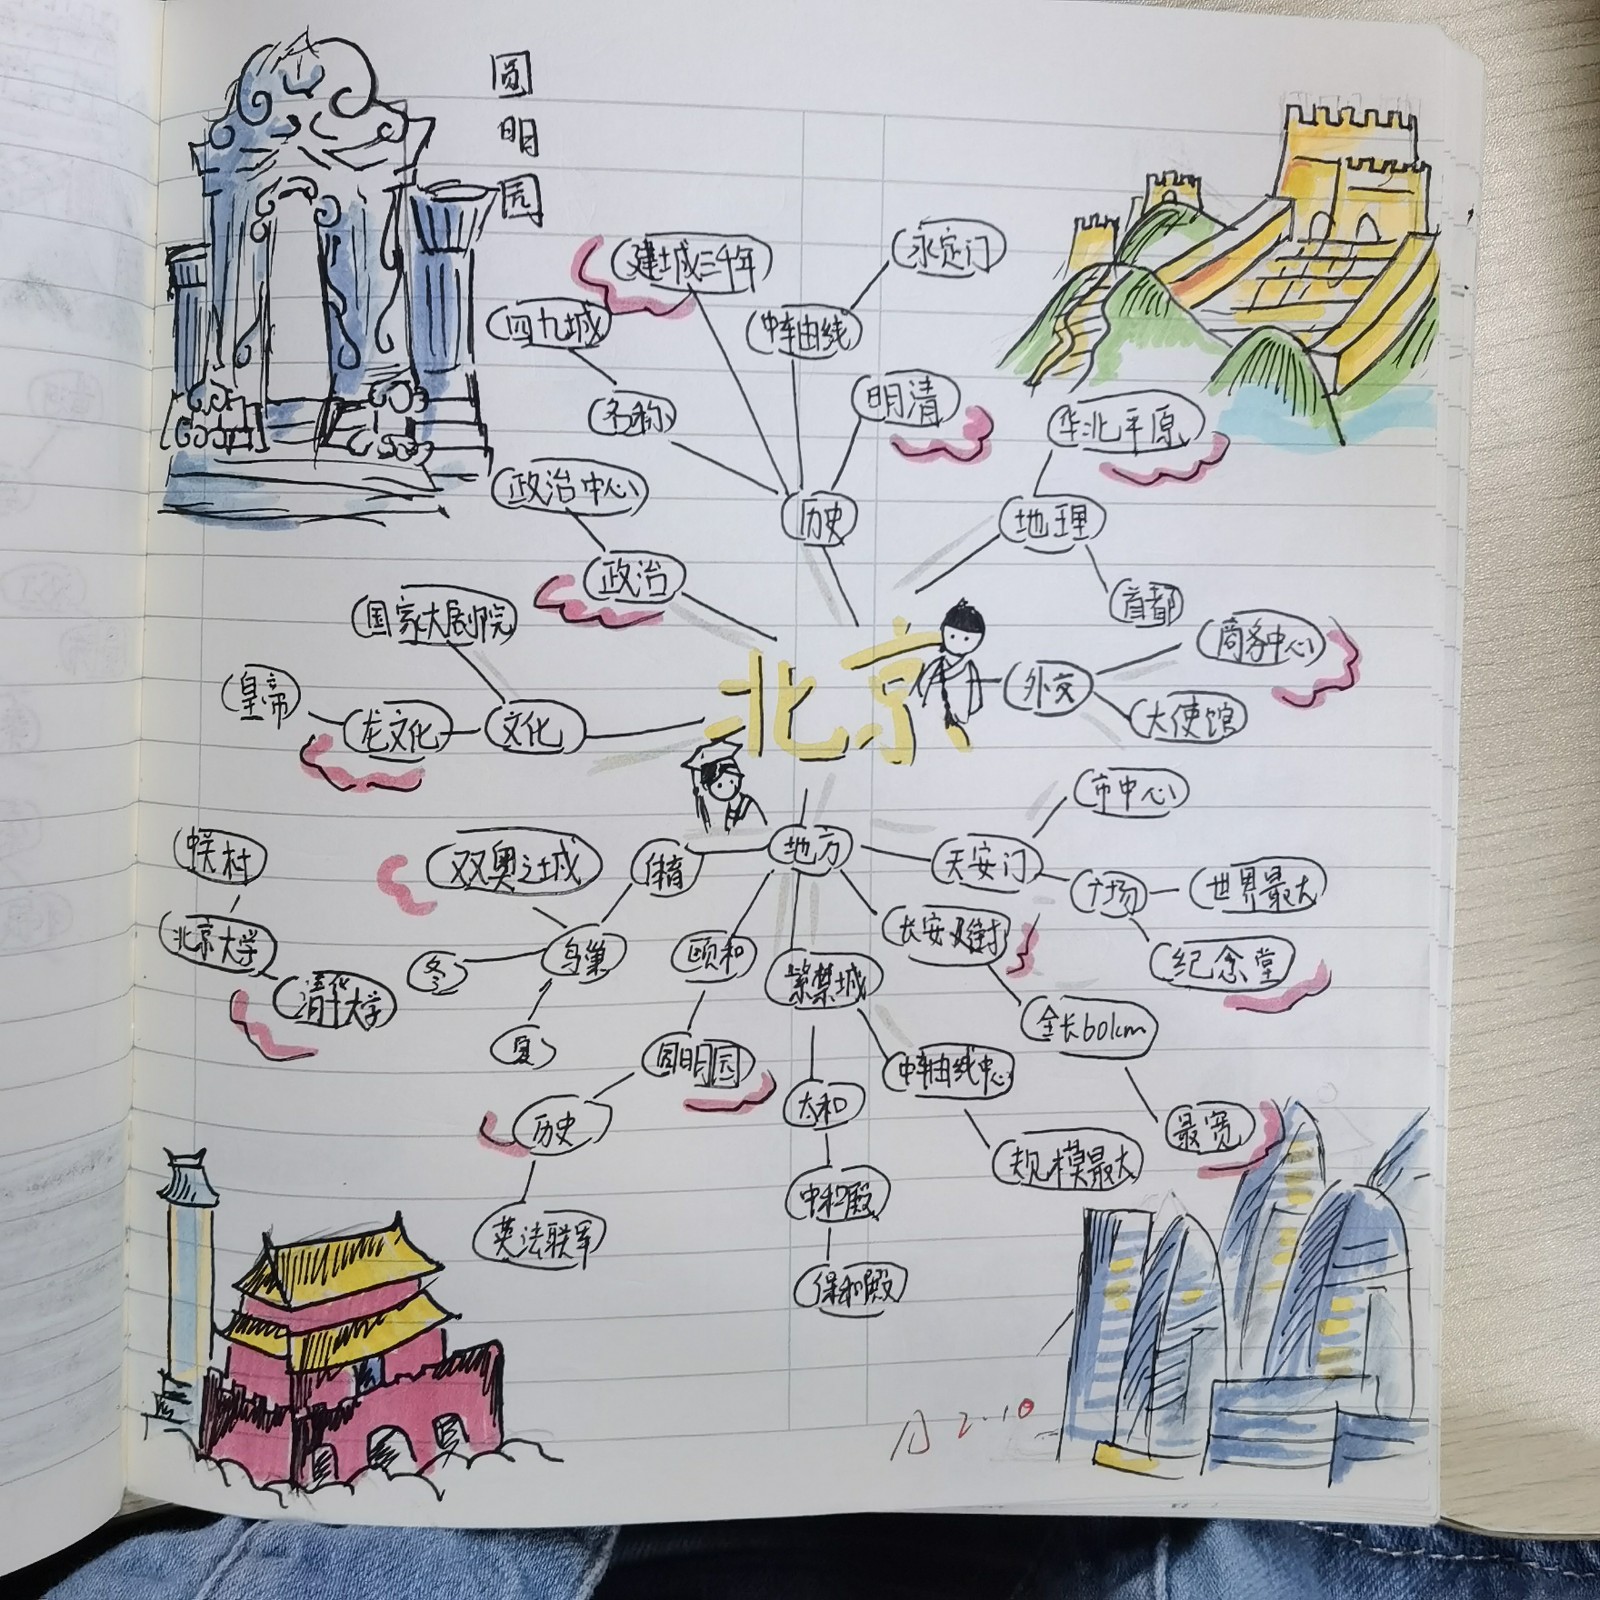 圆
明
园
建城三千年
永定门
四九城
中轴线
名称
明清
华北平原
政治中心
历史
地理
政治
首都
国家大剧院
商务中心
北京
皇帝
龙文化
文化
外交
大使馆
市中心
地方
天安门
双奥之城
体育
广场
世界最大
北京大学
鸟巢
颐和
长安街
纪念堂
冬
紫禁城
清华大学
全长60km
夏
圆明园
中轴线中心
太和
历史
最宽
规模最大
中和殿
英法联军
保和殿
A 2.10